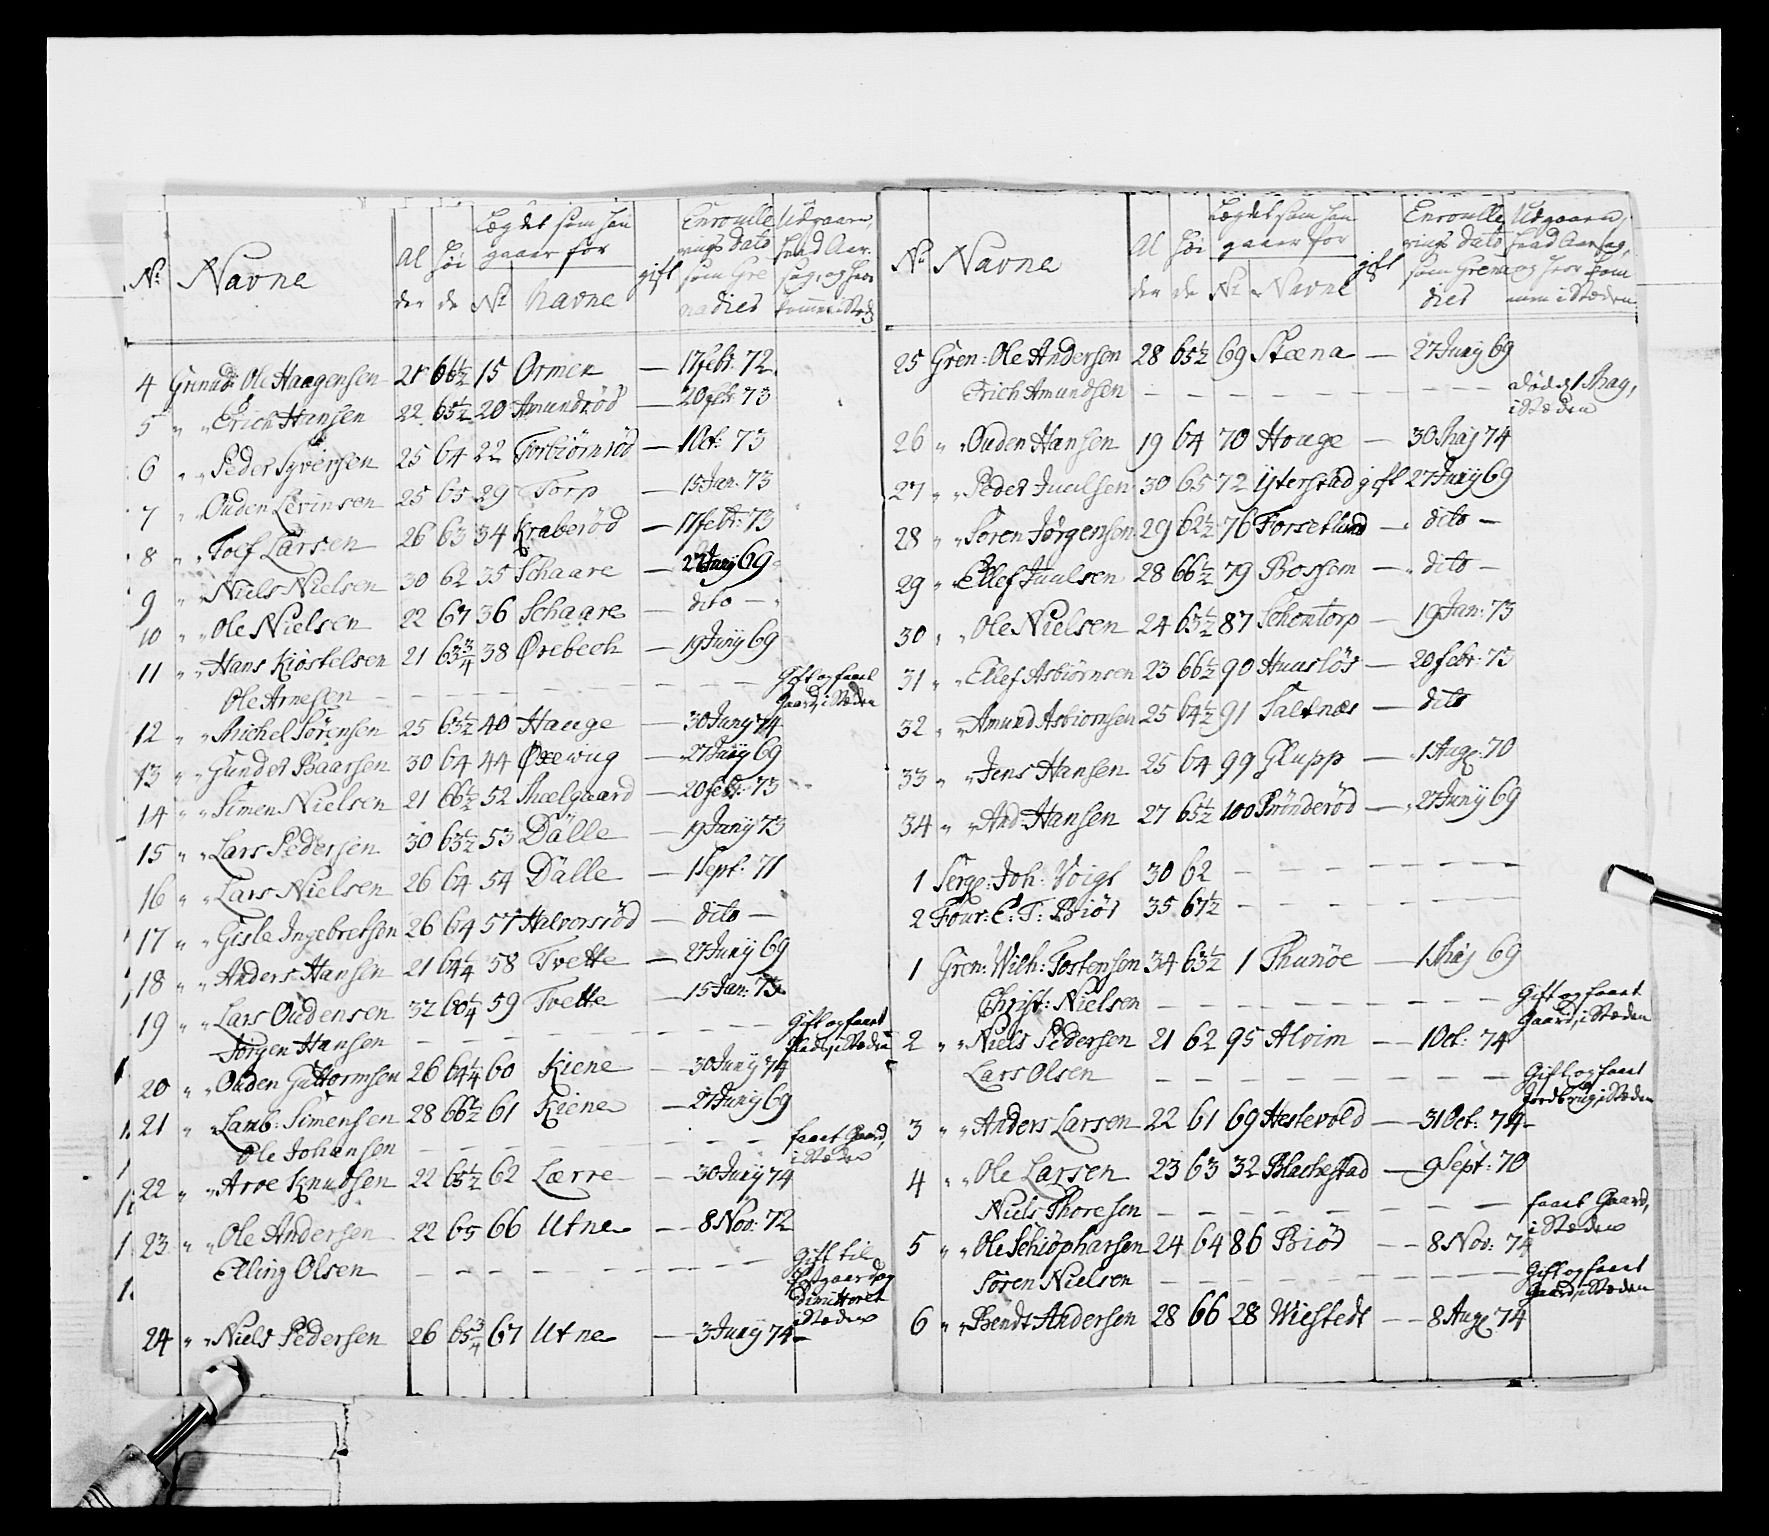 No Navne Alder Høide Lægdet som han gaaer for No Navne gift Enroullerings Dato som Grenadier
4 Grenad: Ole Haagensen 21 66½ 15 Ormen — 17 febr: 72.
5 " " Erich Hansen 22 65½ 20 Amundrød — 20 febr: 73
6 " " Peder Syversen 25 64 22 Torbiörnröd — 1 Oct: 73
7 " " Ouden Levinsen 25 65 29 Torp — 15 Jan: 73
8 " " Toef Larsen 26 63 34 Kraberöd — 17 febr: 73
9 " " Niels Nielsen 30 62 35 Schaare — 27 Juny 69
10 " " Ole Nielsen 22 67 36 Schaare — dito —
11 " " Hans Kiöstelsen 21 63¾ 38 Ørebech — 19 Juny 69
Ole Arnesen — — — — — — — — Gift og faaet Gaard, i Stæden
12 " " Michel Sörensen 25 63½ 40 Hauge — 30 Juny 74
13 " " Gunder Baarsen 30 64 44 Øxewiig — 27 Juny 69
14 " " Simen Nielsen 21 66½ 52 Thoelgaard — 20 febr: 73
15 " " Lars Pedersen 30 63½ 53 Dälle — 19 Juny 73
16 " " Lars Nielsen 26 64 54 Dälle — 1 Sept: 71
17 " " Gisle Ingebretsen 26 64 57 Halvorsröd — dito —
18 " " Anders Hansen 21 64¼ 58 Tvette — 27 Juny 69
19 " " Lars Oudensen 32 60¼ 59 Tvette — 15 Jan: 73
Jörgen Hansen — — — — — — — Gift og faaet Plads, i Stæden
20 " Ouden Guttormsen 26 64¼ 60 Kiene — 30 Juny 74
21 " Lamb: Simensen 28 66½ 61 Kiene — 27 Juny 69
Ole Johansen — — — — — — — faaet Gaard, i Stæden
22 " " Aroe Knudsen 22 65½ 62 Lærre — 30 Juny 74
23 " " Ole Andersen 22 65 66 Utne — — 8 Nov: 72
Elling Olsen — — — — — — — — Gift til Gaard og dimitteret i Stæden
24 " " Niels Pedersen 26 65¾ 67 Utne — — 3 Juny 74 —
No Navne Alder Høide Lægdet som han gaaer for No Navne gift Enroullerings Dato som Grenadier
25 Gren: Ole Andersen 28 65½ 69 Steena — 27 Juny 69
Erich Amundsen — — — — — — — — död d 1 May, i Stæden
26 " " Ouden Hansen 19 64 70 Houge — 30 May 74
27 " " Peder Juulsen 30 65 72 Ysterstad gift 27 Juny 69
28 " " Sören Jörgensen 29 62½ 76 Forsetlund — dito —
29 " " Ellef Juulsen 28 66½ 79 Bossem — " dito —
30 " " Ole Nielsen 24 63½ 87 Schontorp — 19 Jan: 73
31 " " Ellef Asbiörnsen 23 66½ 90 Huuslös — 20 febr: 73
32 " " Amund Asbiornsen 25 64½ 91 Saltnæs — dito
33 " " Jens Hansen 25 64 99 Glupp — 1 Aug: 70
34 " " And: Hansen 27 65½ 100 Brönderöd — 27 Juny 69
1 Serg: Joh: Voigt 30 62 — — — — — —
2 Four: C: T: Biör 35 67½ — — — — — —
1 Gren: Wilh: Tostensen 34 63½ 1 Thunöe — 1 May 69
Christ: Nielsen — — — — — — — — Gift og faaet Gaard, i Stæden
2 " " Niels Pedersen 21 62 95 Alvim — — 1 Oct: 74
Lars Olsen — — — — — — — — Gift, og faaet Jordbrug, i Stæden
3 " " Anders Larsen 22 61 69 Hestevold — — 31 Oct: 74 —
4 " " Ole Larsen 23 63 32 Blachestad — 9 Sept: 70
Niels Thoresen — — — — — — — — faaet Gaard, i Stæden
5 " " Ole Schiöpharsen 24 64 86 Biör — — 8 Nov: 74
Sören Nielsen — — — — — — — — Gift og faaet Gaard, i Stæden
6 " " Bendt Andersen 28 66 28 Wiestedt — — 8 Aug: 74